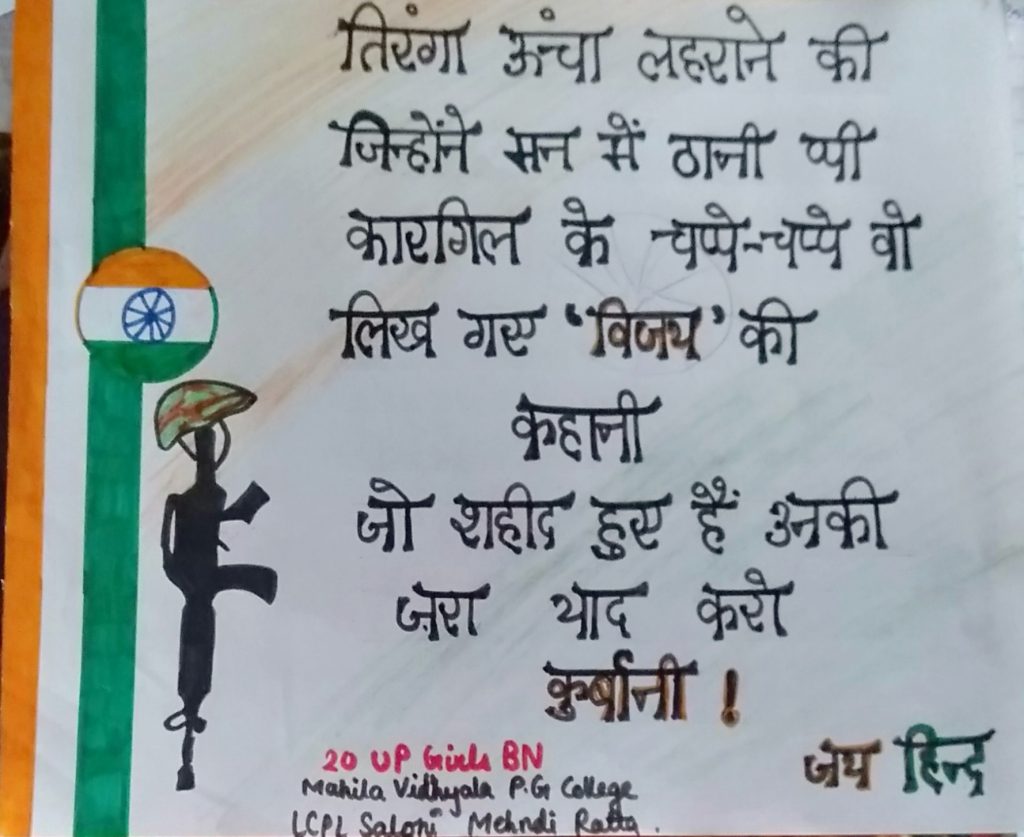 तिरंगा ऊंचा लहराने की
जिन्होंने मन में ठानी थी
कारगिल के चप्पे-चप्पे वो
लिख गए 'विजय' की
कहानी
जो शहीद हुए हैं उनकी
ज़रा याद करो
कुर्बानी !
जय हिन्द
20 UP Girls BN
Mahila Vidhyala P.G College
LCPL Saloni Mehndi Ratta .